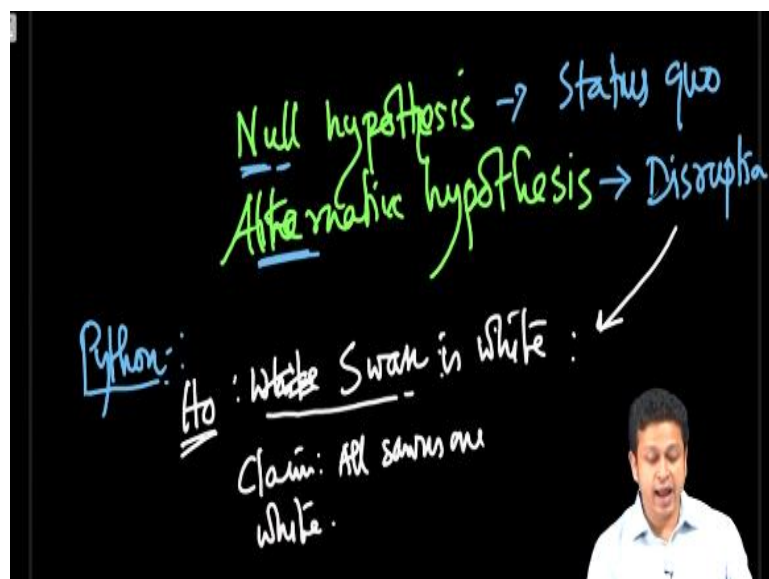 Null hypothesis → Status quo
Alternative hypothesis → Disruption
Python:
Ho : White Swan is white :
Claim: All swans are
white.